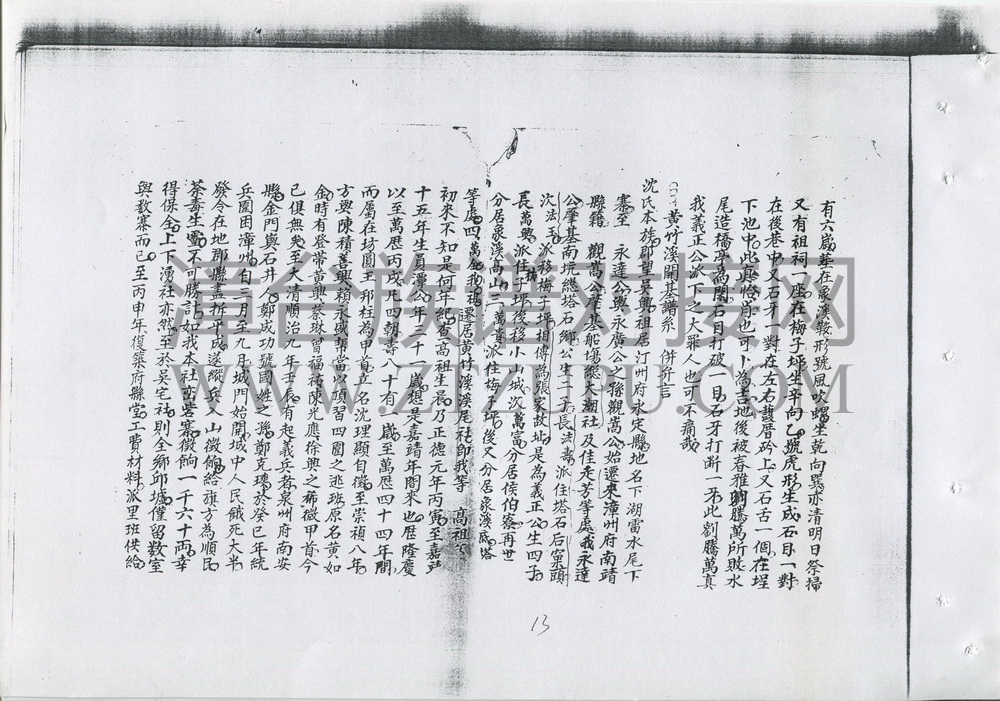 有六歲葬在象溪鞍形號風吹螺坐乾向巽亦清明日祭掃
又有祖祠一座在梅子坪坐辛向乙號虎形生成石目一對
在後巷中又石牙一對在左右護厝矜上又石舌一個在埕
下池中此處恰肖也可卜為吉地後被春雅劉騰萬所敗水
尾造橋亭為閘石目打破一目石牙打斷一牙此劉騰萬真
我義正公派下之大罪人也可不痛哉
黃竹溪開基譜系 併弁言
沈氏本族郡望吳興祖居汀州府永定縣地名下湖雷水尾下
寨至 永達公與永廣公之孫觀嵩公始遷來漳州府南靖
縣籍 觀嵩公肇基船場總大潮社及佳走芳等處我永達
公肇基南坑總塔石鄉公生二子長法壽派住塔石石窠頭
次法玉派移梅子坪相傳為張家故址是為義正公生四子
長萬興派住子坪後移小山城次萬富分居侯伯寮再世
分居象溪高山三萬貴派住梅子坪後又分居象溪底塔
等處四萬全我祖遷居黃竹溪溪尾社即我等 高祖
初來不知是何年紀查高祖生辰乃正德元年丙寅至嘉靖
十五年生員潭公年三十一歲想是嘉靖年間來也歷隆慶
以至萬歷丙戌凡四朝壽八十有 歲至萬歷四十四年間
而屬在坊圍王邦柱為甲首立名沈理顯自徵至崇禎八年
方與陳積善與穎永盛幫當以頂習四圍之逃班原名黃如
金時有登帶黃興蔡琳曾福祐陳光應徐興之稀徵甲首今
已俱無矣至大清順治九年壬辰有起義兵者泉州府南安
縣金門與石井人鄭成功號國姓之孫鄭克塽於癸巳年統
兵圍困漳州自三月至九月城門始開城中人民餓死大半
發令在地郡縣盡拆平成遂縱兵入山徵餉給旗方為順民
荼毒生靈不可勝計如我本社崮砦寨徵餉一千六十兩幸
得保全上下湧社亦然至於吳宅社則全鄉邱墟僅留數室
與敎寨而已至丙申年復築府縣堂工費材料派里班供給
13
漳台族谱对接网
WWW.ZTZUPU.COM